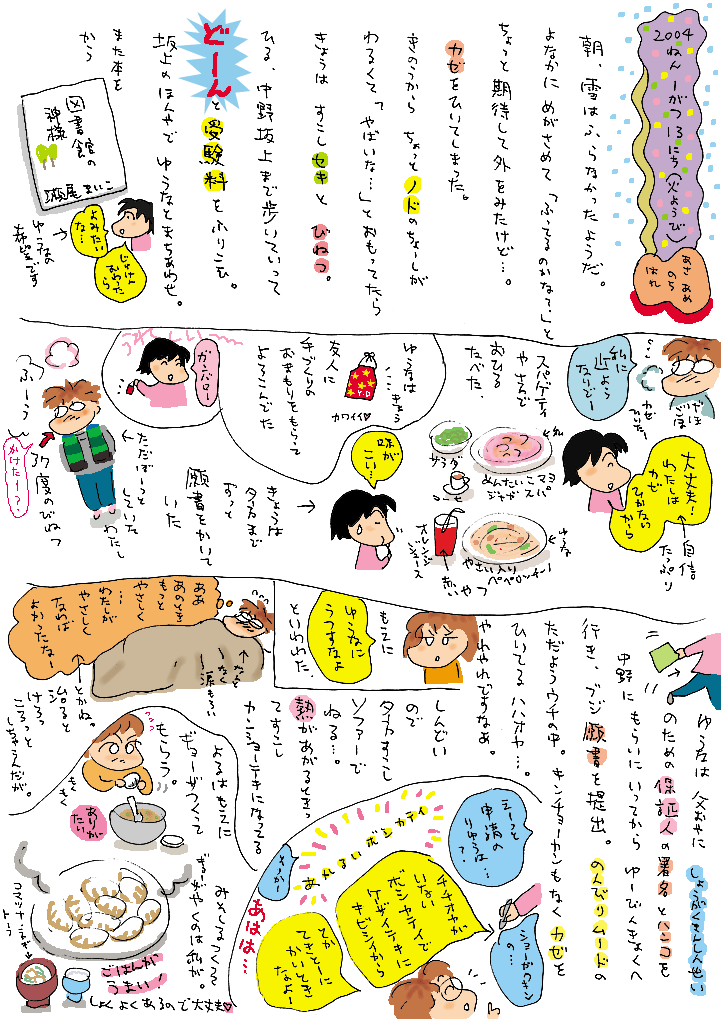 2004
ねん一がつ13にち(火ようび)
あさ あめ
のち
はれ
朝、雪はふらなかったようだ。
よなかに めがさめて「ふってるのかな?」と
ちょっと期待して外をみたけど…。
カゼをひいてしまった。
きのうから ちょっとノドのちょーしが
わるくて、「やばいな…」とおもってたら
きょうは すこしセキと びねつ。
ひる、中野坂上まで歩いていって
どーんと受験料をふりこむ。
坂上のほんやで ゆうなとまちあわせ。
また本を
かう
図書館の
神様
瀬尾まいこ
よみたい
な…
じゅけん
おわった
ら
ゆうなの
希望です
私に
近よう
ないでー
げほ
ごほ
カゼ
ひいた
大丈夫!
わたしは
カゼ
ひかない
から
自信
たっぷり
スパゲティ
やさんで
おひる
たべた。
サラダ
めんたいこマヨ
ジャガ スパ
ゆうな
やさい入り
ペペロンチーノ
オレンジ
ジュース
赤い
やつ
味が
こい…
ゆうなは
きょう
友人に
手づくりの
おまもりをもらって
よろこんでた
カワイイ♡
うれしいー
ガンバロー
きょうは
夕方まで
ずっと
願書をかいて
いた
ただぼーっと
していた
わたし
ふーっ
37度のびねつ
かけたー?
ゆうなは 父おやに
しょうがくきんしんせい
のための保証人の署名とハンコを
中野に もらいにいってから ゆーびんきょくへ
行き、ブジ願書を提出。 のんびりムードの
ただようウチの中。キンチョーカンもなく カゼを
ひいてるハハオヤ…。
やれやれですなあ。
もえに
ゆうなに
うつすなよ
といわれた。
ああ
あのとき
もっと
やさしく
…
わたしが
やさしく
なれば
よかったなー
とかね。
治ると
けろっ
ころっと
しちゃうんだが。
なんと
なく
涙もろい
しんどい
ので
夕方すこし
ソファーで
ねる…。
熱があがるときって
てすこし
カンショーテキになってる
よるはもえに
ギョーザつくって
もらう。
もくもく
ありが
たい
みそしるつくって
ぎょーざやくのは私が。
コマツナ・ネギ
トーフ
ごはんが
うまい!
しょくよくあるので大丈夫♡
ショーガクキン
の…
えーっと
申請の
りゆうは…
?
チチオヤが
いない
ボシカテイで
ケーザイテキに
キビシイから
とか
てきとーに
かいとき
なよー
あかるいボシカテイ
あはは…